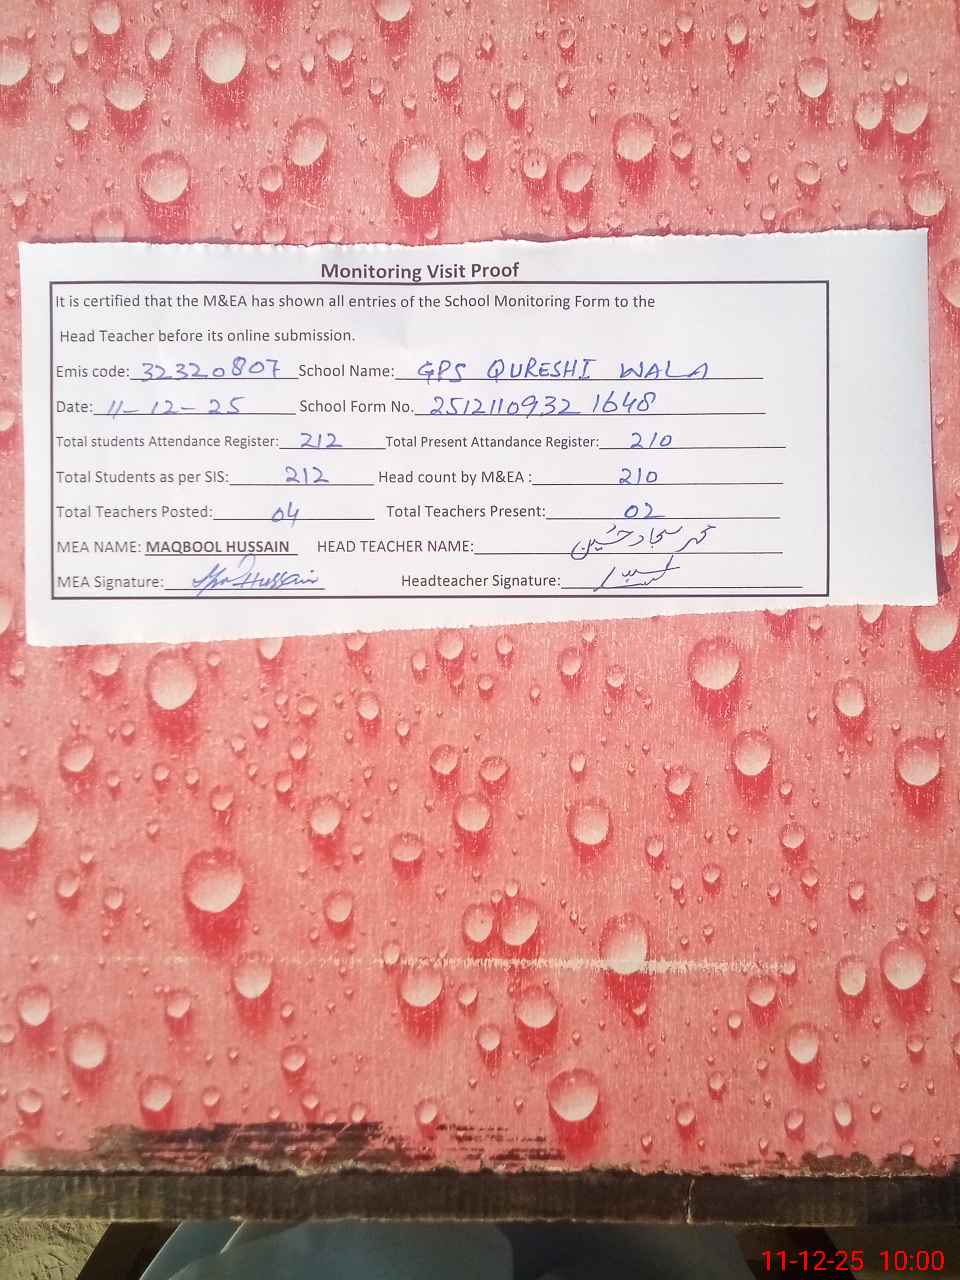 Monitoring Visit Proof
It is certified that the M&EA has shown all entries of the School Monitoring Form to the
Head Teacher before its online submission.
Emis code: 32320807 School Name: GPS QURESHI WALA
Date: 11-12-25 School Form No. 2512110932 1648
Total students Attendance Register: 212 Total Present Attandance Register: 210
Total Students as per SIS: 212 Head count by M&EA : 210
Total Teachers Posted: 04 Total Teachers Present: 02
MEA NAME: MAQBOOL HUSSAIN HEAD TEACHER NAME: محمد سجاد حسین
MEA Signature: Hussain Headteacher Signature:
11-12-25 10:00